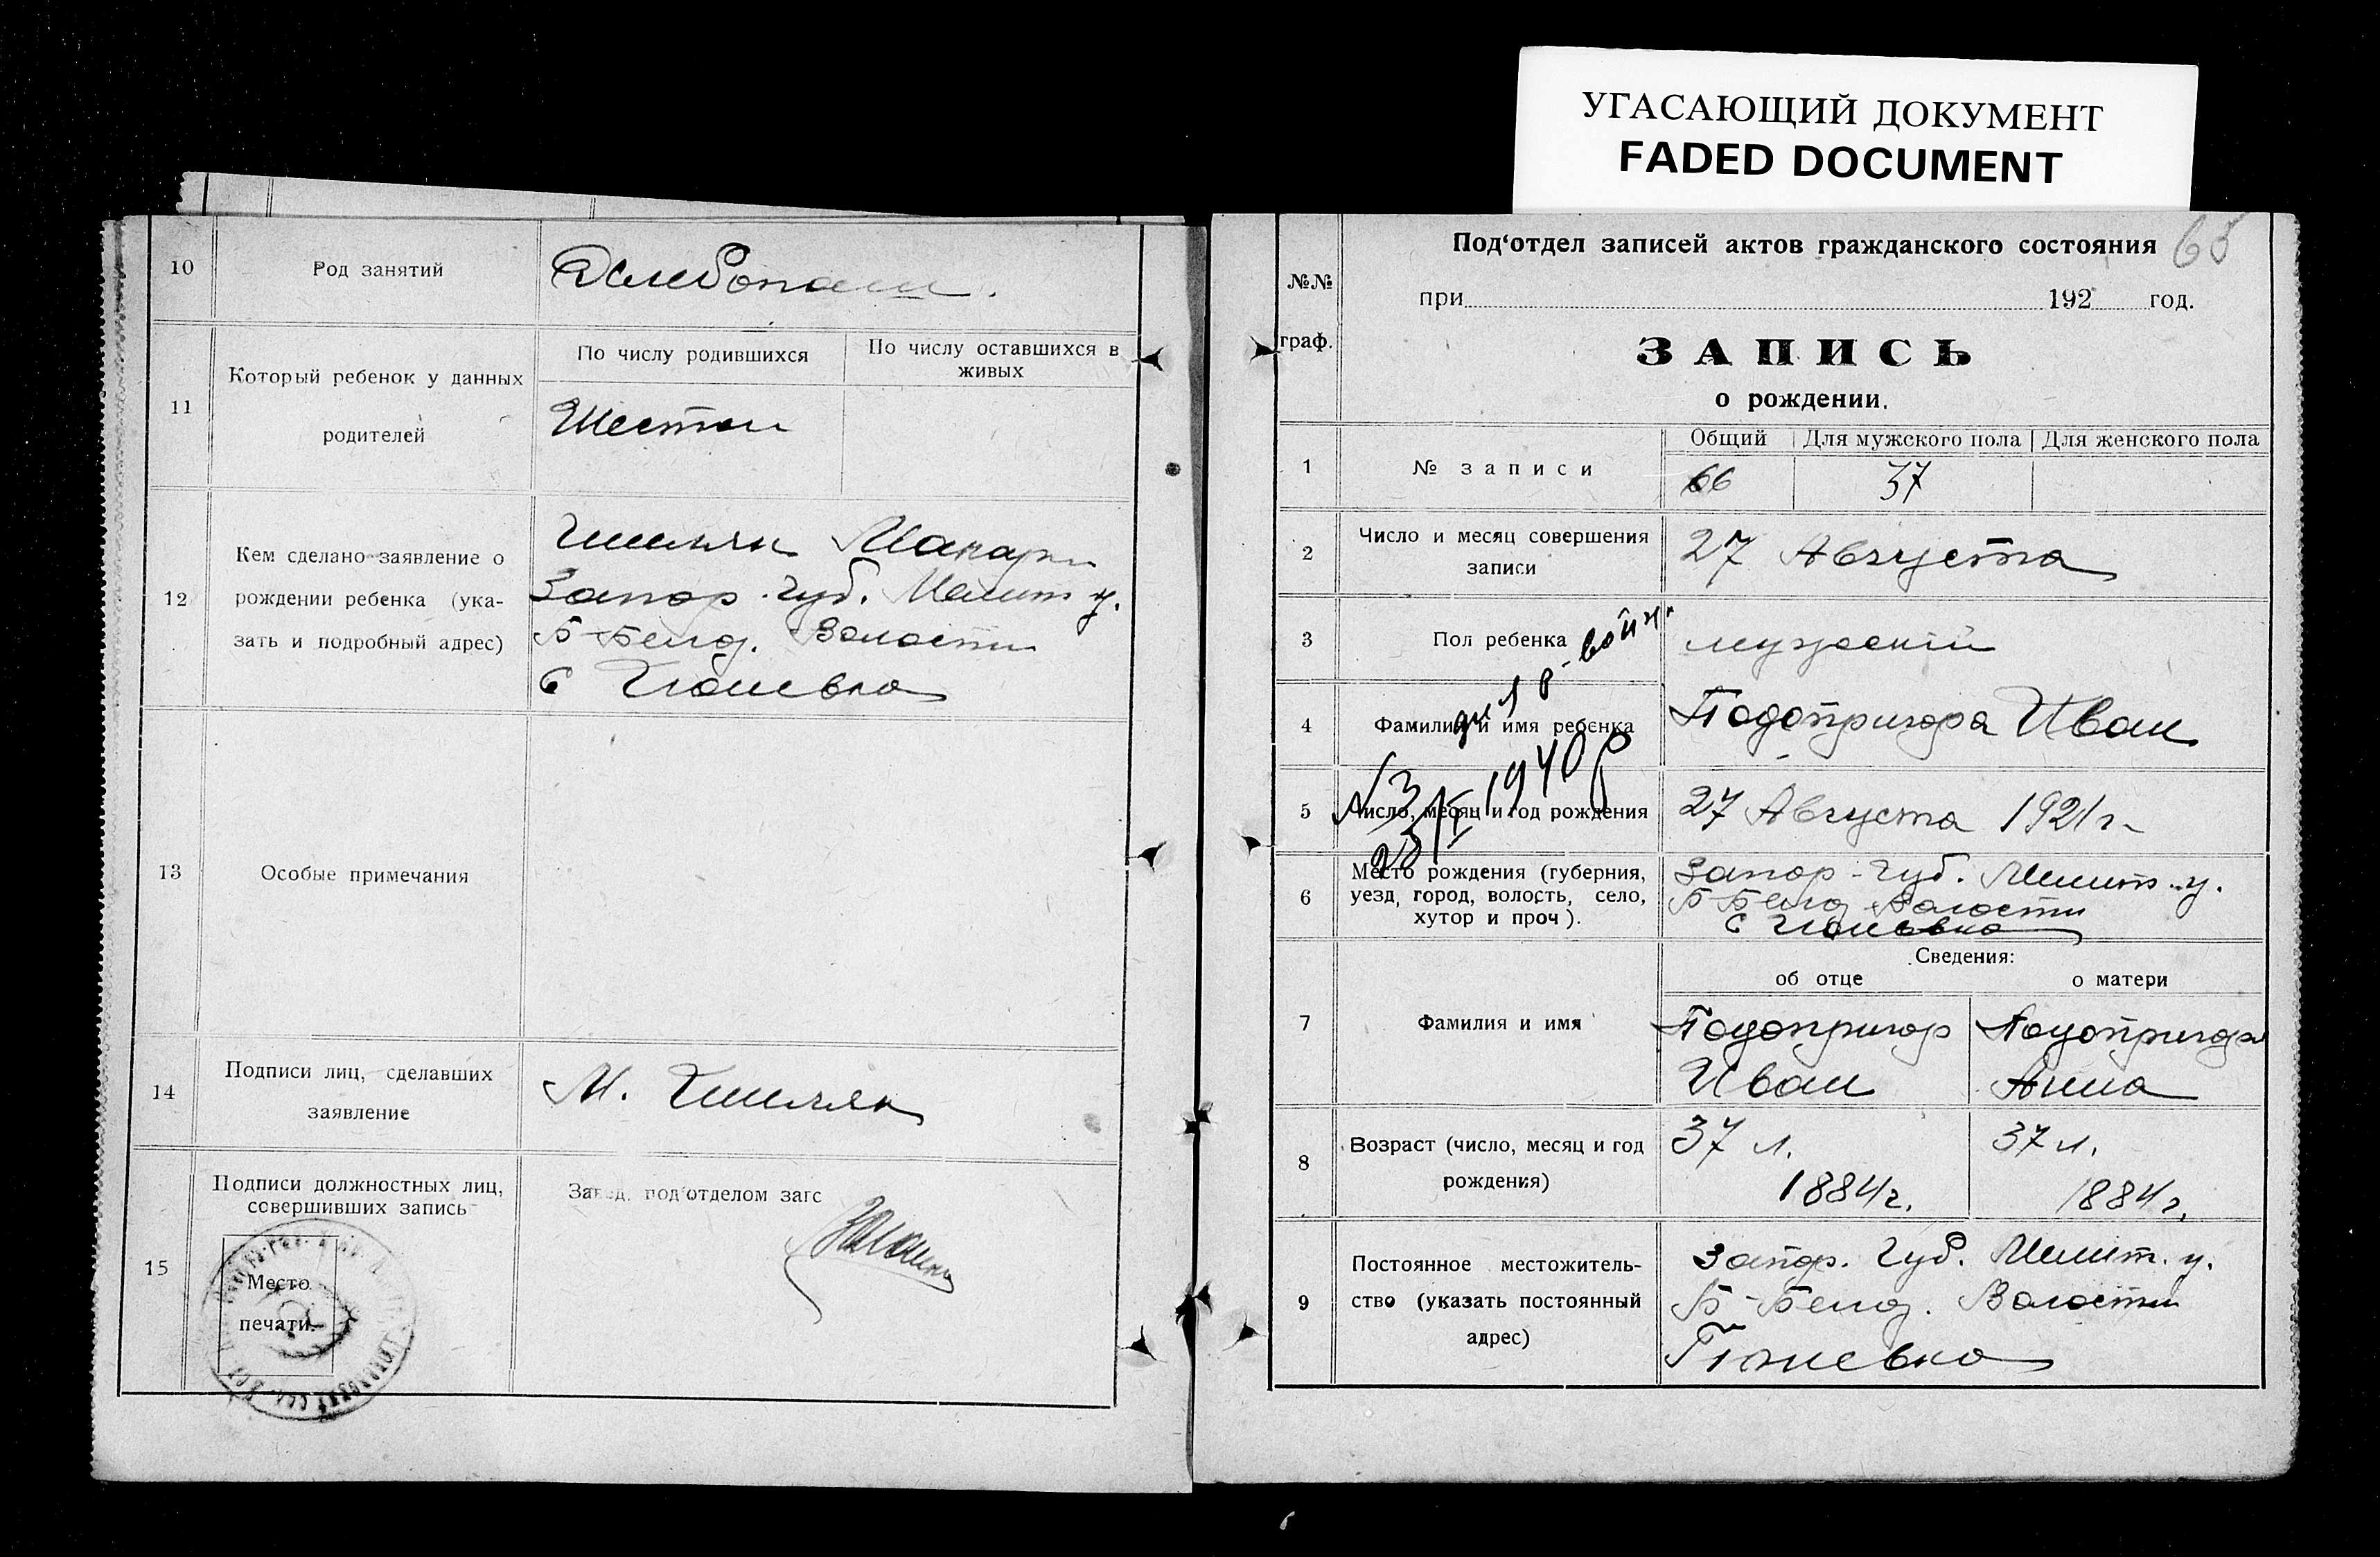 УГАСАЮЩИЙ ДОКУМЕНТ
FADED DOCUMENT
10
Род занятий
Хлебопаш.
11
Который ребенок у данных
родителей
По числу родившихся
По числу оставшихся в
живых
Шестой
12
Кем сделано заявление о
рождении ребенка (ука-
зать и подробный адрес)
Макары
Запор. губ. Мелит у.
Б-Белоз. Волости
с Гюневка
13
Особые примечания
14
Подписи лиц, сделавших
заявление
М.
15
Подписи должностных лиц,
совершивших запись
Завед. под'отделом загс
Место
печати.
65
№№
граф.
Под'отдел записей актов гражданского состояния
при 192 год.
ЗАПИСЬ
о рождении.
1
№ записи
Общий
Для мужского пола
Для женского пола
66
37
2
Число и месяц совершения
записи
27 Августа
3
Пол ребенка
мужеский
4
Фамилия и имя ребенка
Подопригора Иван
5
Число, месяц и год рождения
27 Августа 1921 г.
1940
6
Место рождения (губерния,
уезд, город, волость, село,
хутор и проч).
Запор. губ. Мелит. у.
Б-Белоз Волости
с Гюневка
Сведения:
об отце
о матери
7
Фамилия и имя
Подопригор
Иван
Подопригора
Анна
8
Возраст (число, месяц и год
рождения)
37 л.
1884 г.
37 л.
1884 г.
9
Постоянное местожитель-
ство (указать постоянный
адрес)
Запор. Губ. Мелит. у.
Б-Белоз. Волости
Гюневка